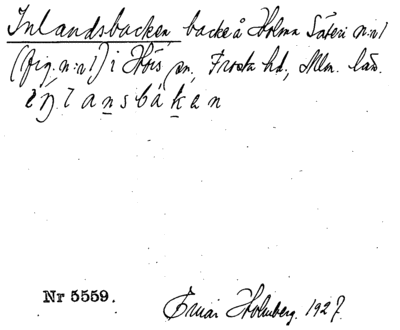 Inlandsbacken backe å Holma Säteri n:r 1
(fig. n:r 1) i Hörs sn, Frosta hd, Mlm. län.
Nr 5559.
Einar Holmberg. 1927.